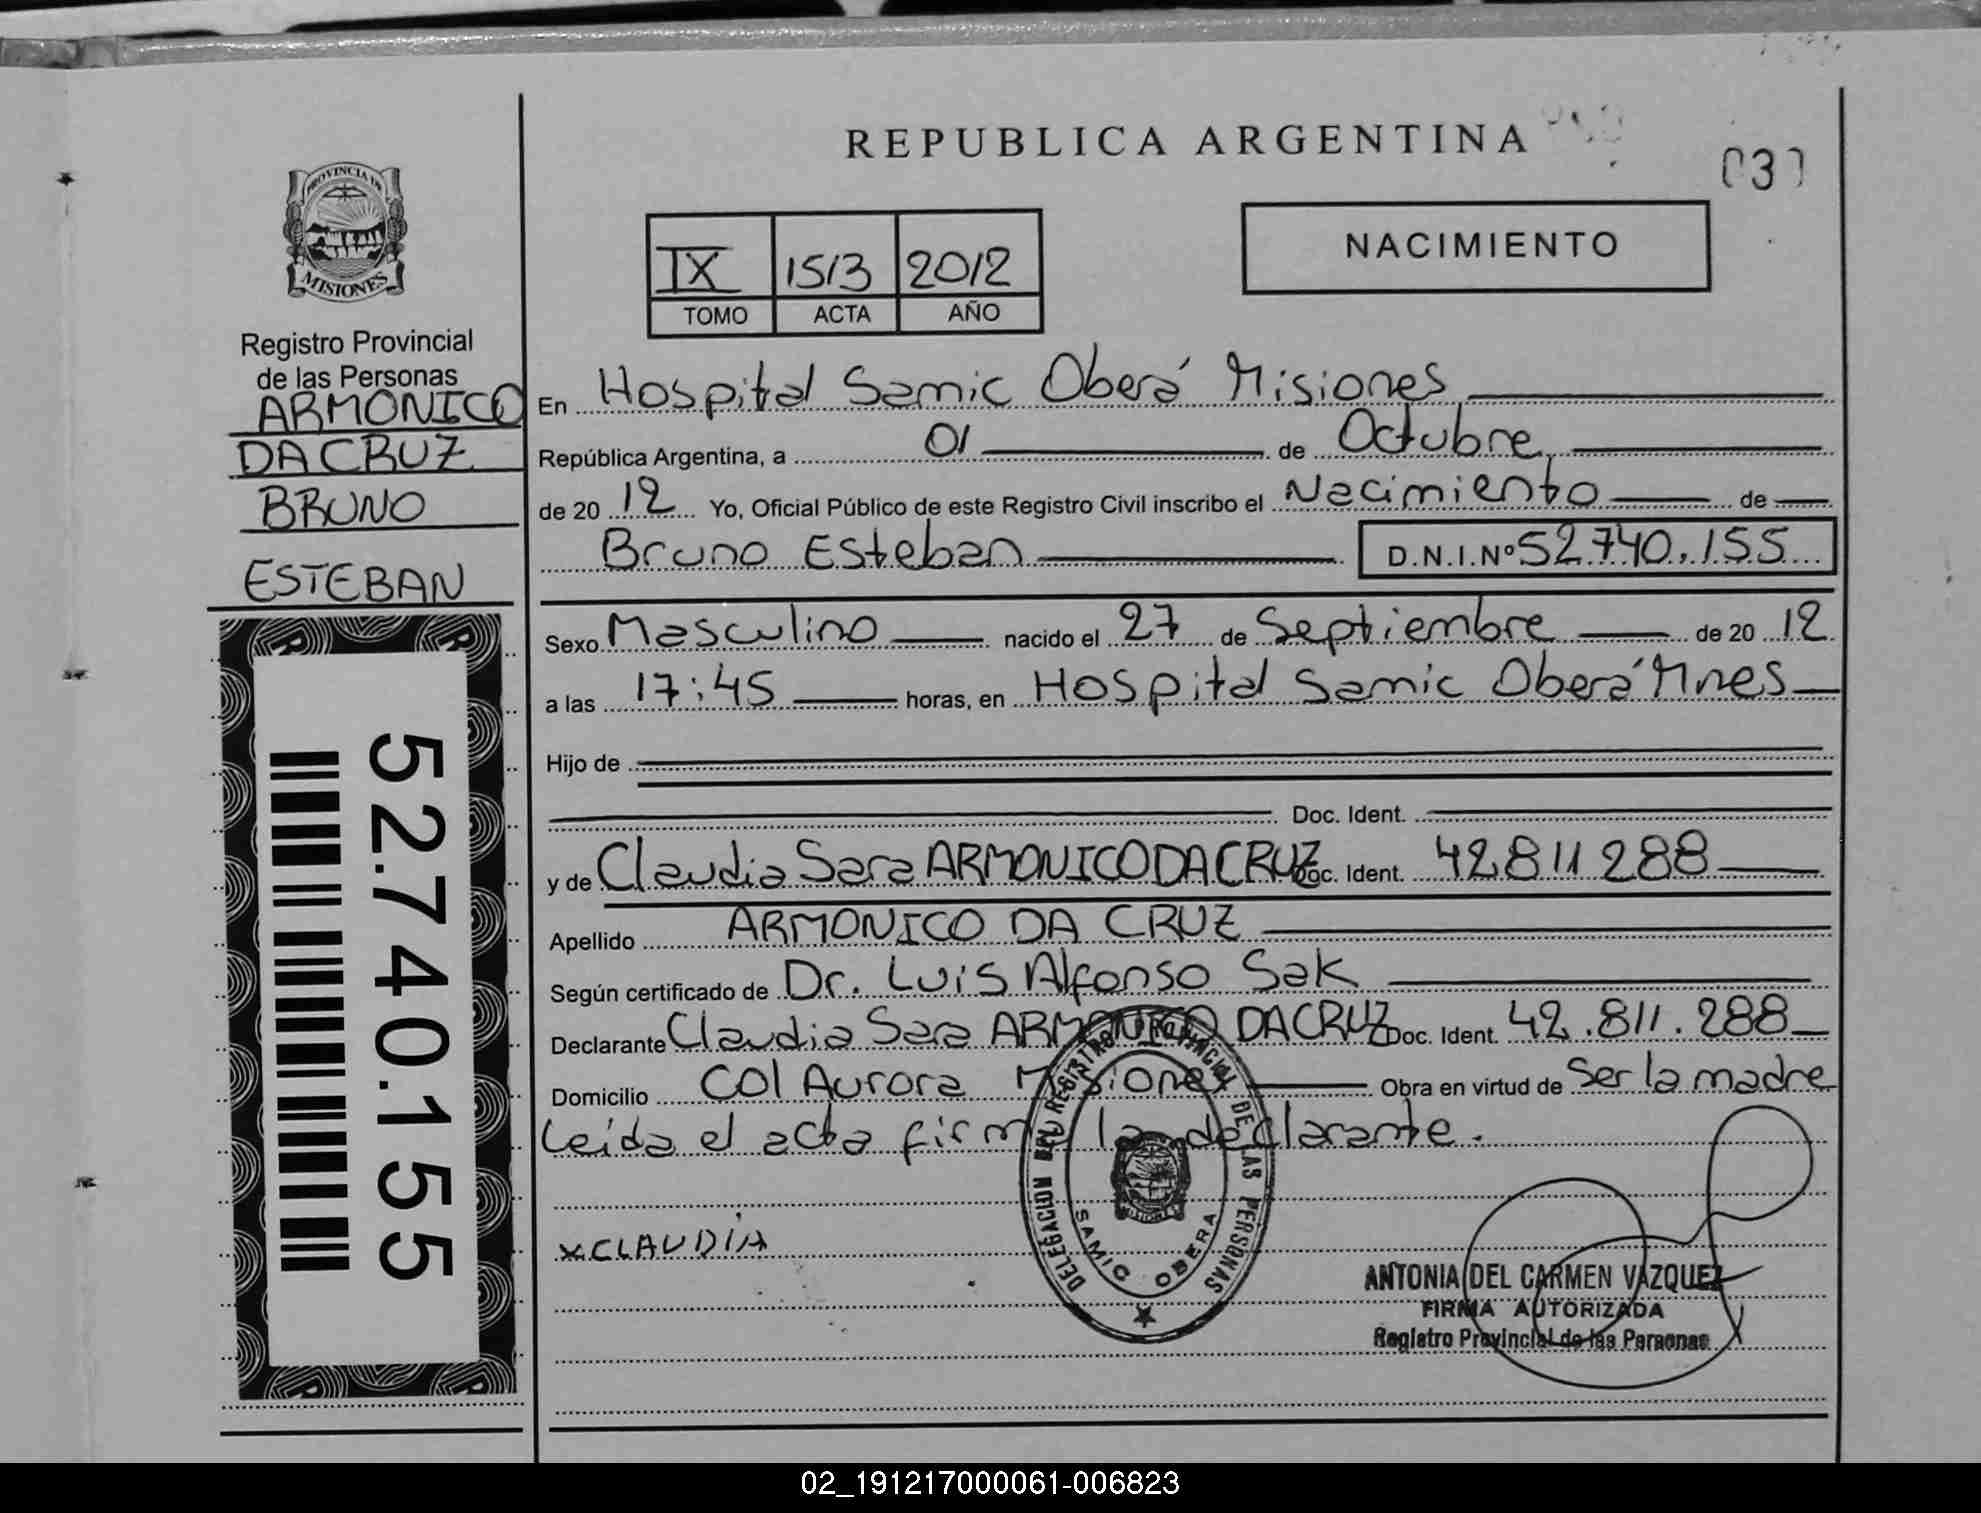 REPUBLICA ARGENTINA
030
PROVINCIA DE
MISIONES
Registro Provincial
de las Personas
ARMONICO
DA CRUZ
BRUNO
ESTEBAN
52.740.155
52.740.155
IX 1513 2012
TOMO ACTA AÑO
NACIMIENTO
En Hospital Samic Oberá Misiones
República Argentina, a 01 de Octubre
de 20 12 Yo, Oficial Público de este Registro Civil inscribo el Nacimiento de
Bruno Esteban D.N.I.Nº 52.740.155
Sexo Masculino nacido el 27 de Septiembre de 20 12
a las 17:45 horas, en Hospital Samic Oberá Mnes
Hijo de
Doc. Ident.
y de Claudia Sara ARMONICO DA CRUZ Doc. Ident. 42811288
Apellido ARMONICO DA CRUZ
Según certificado de Dr. Luis Alfonso Sak
Declarante Claudia Sara ARMONICO DA CRUZ Doc. Ident. 42.811.288
Domicilio Col Aurora Misiones Obra en virtud de Ser la madre
Leida el acta firma la declarante.
DELEGACION DEL REGISTRO PROVINCIAL DE LAS PERSONAS
SAMIC OBERA
MISIONES
x CLAUDIA
ANTONIA DEL CARMEN VAZQUEZ
FIRMA AUTORIZADA
Registro Provincial de las Personas
02_191217000061-006823